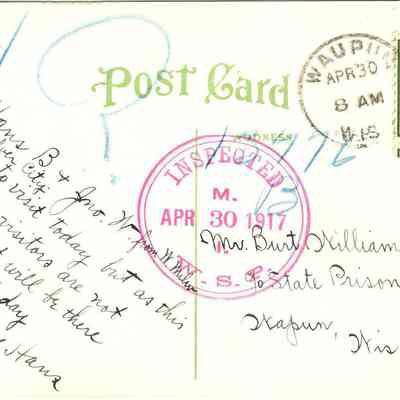 Post Card
ADDRESS
WAUPUN
APR 30
8 AM
WIS
INSPECTED
M.
APR 30 1917
W.S.P.
Hans B + Jno. W. from W. Milw.
to visit today but as this
visitors are not
will be there
day
Hans
Mr. Burt William
c/o State Prison
Wapun,
Wis